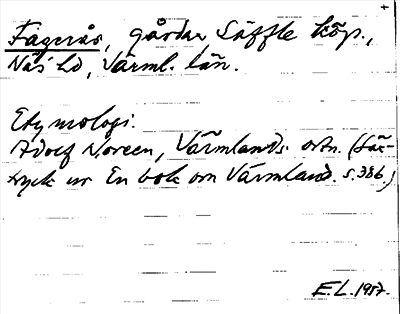 +
Fageräs, gårdar Säffle köp.,
Näs hd, Värml. län.
Etymologi.
Adolf Noreen, Värmlands. ortn. (Sär-
tryck ur En bok om Värmland. s. 386.)
E.L. 1957.